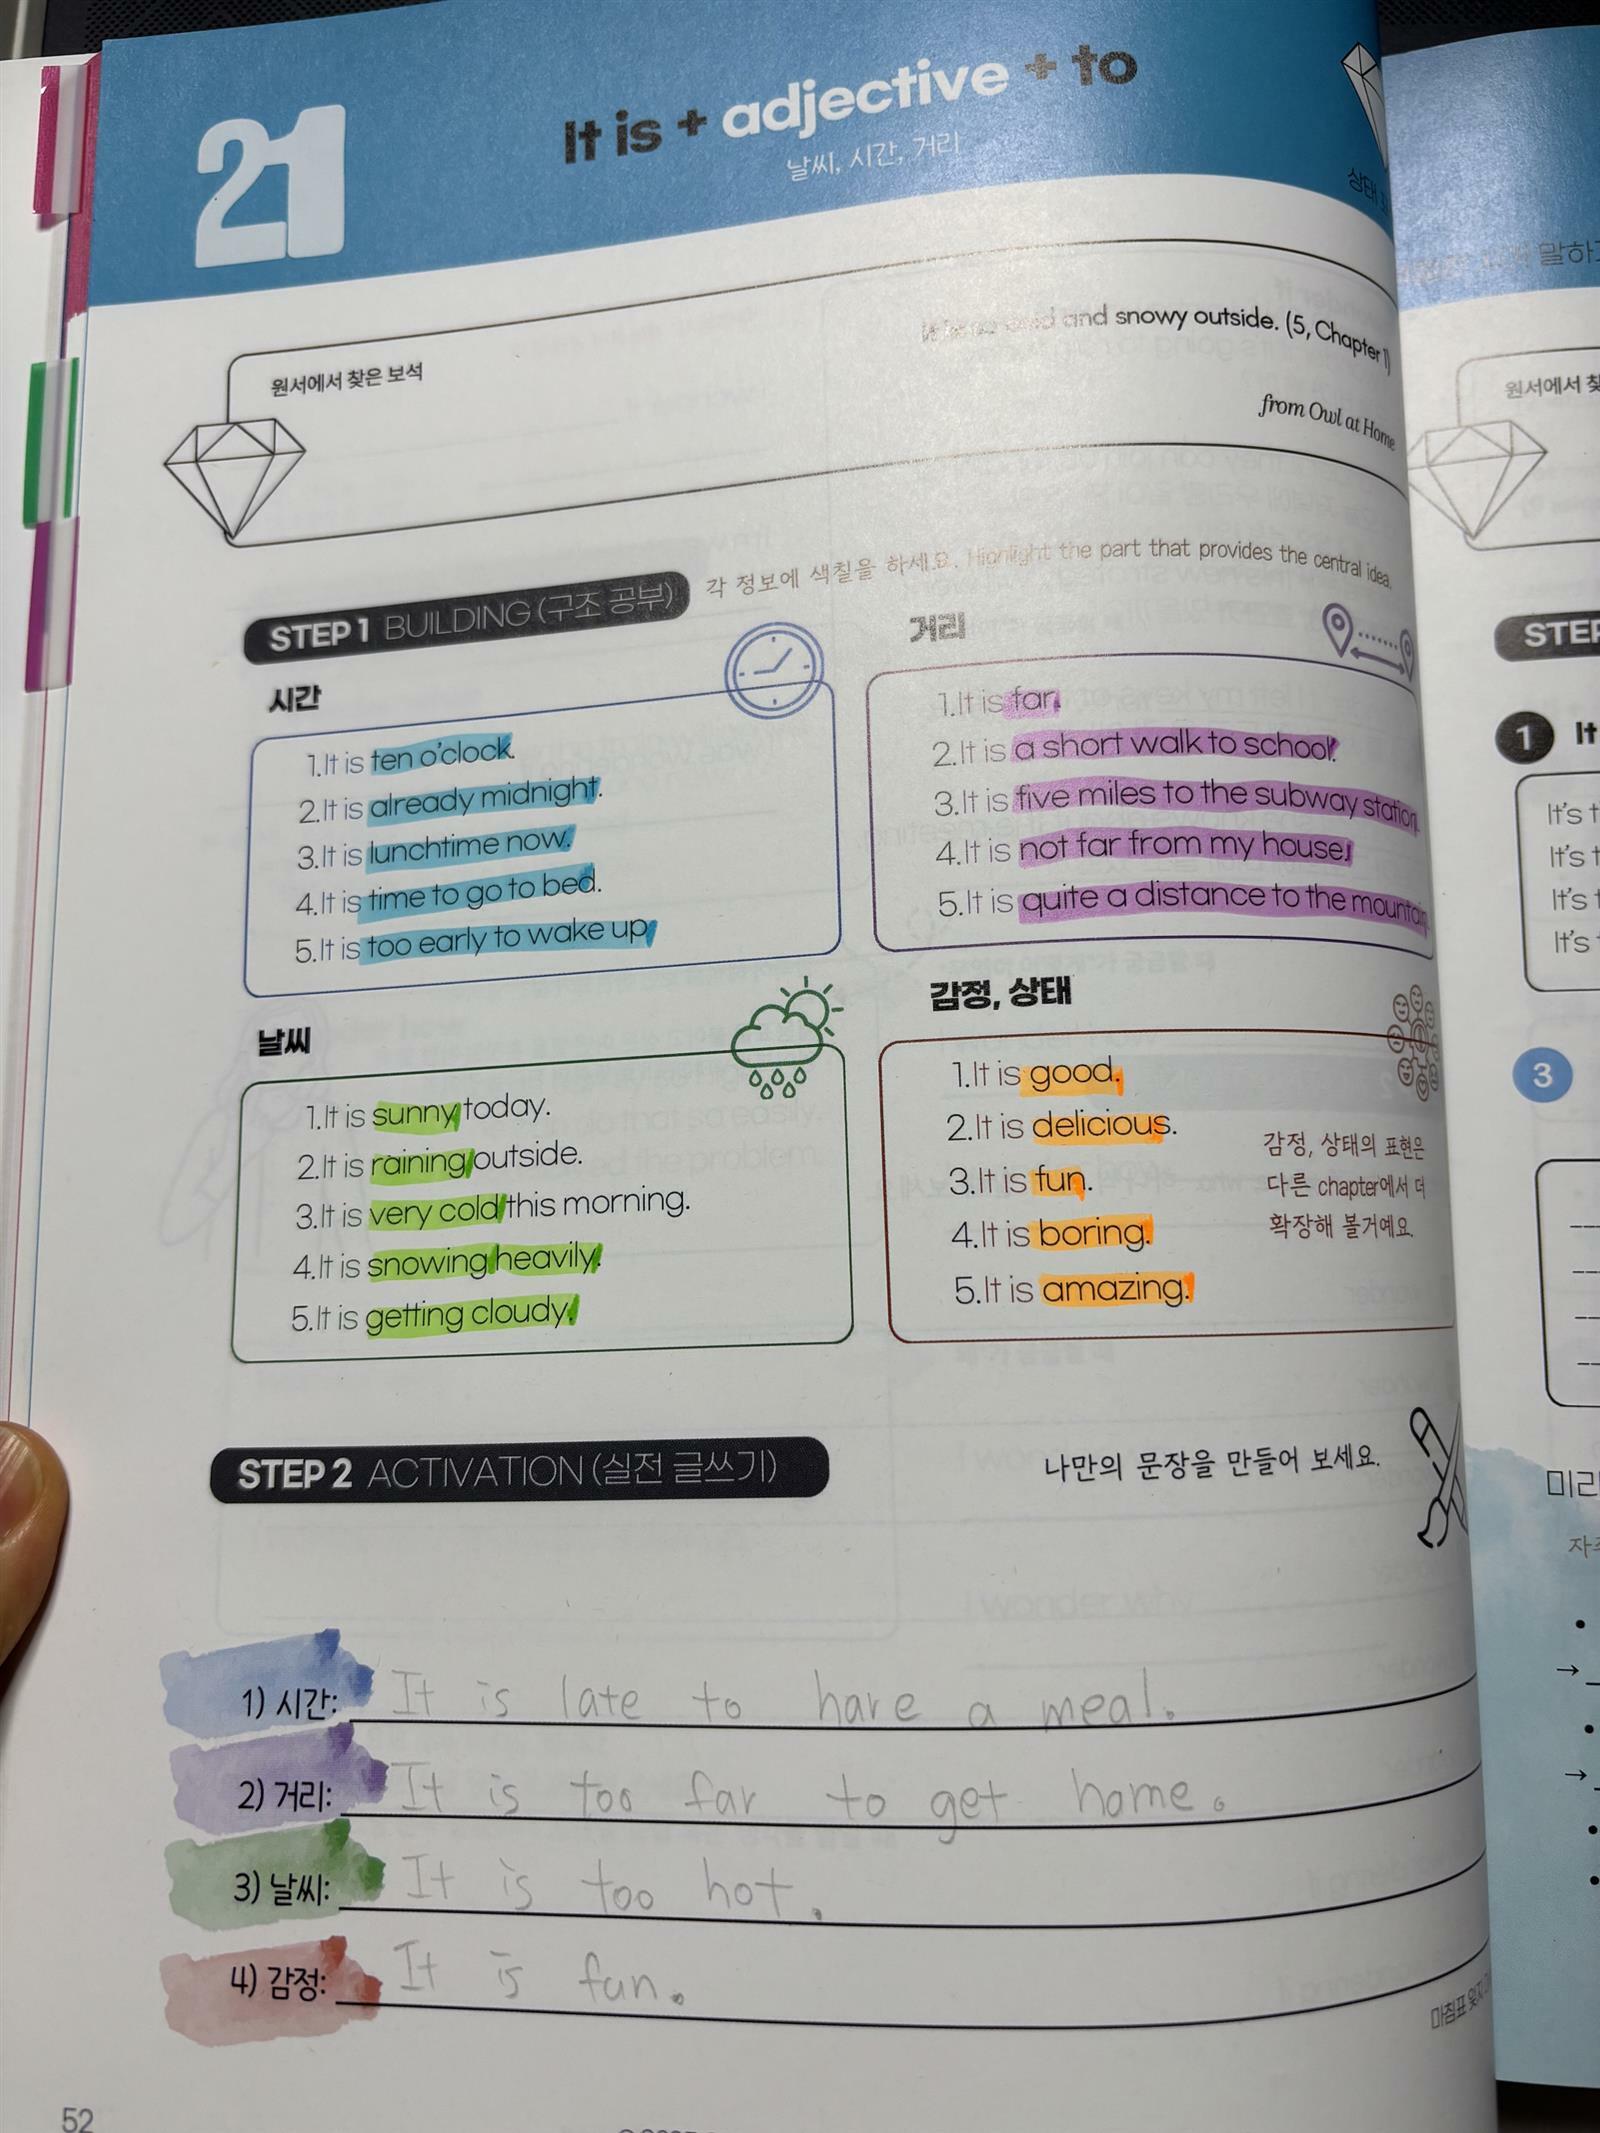 21
It is + adjective + to
날씨, 시간, 거리
상태
원서에서 찾은 보석
It is so cold and snowy outside. (5, Chapter 1)
from Owl at Home
STEP 1 BUILDING (구조 공부)
각 정보에 색칠을 하세요. Highlight the part that provides the central idea.
시간
1.It is ten o'clock.
2.It is already midnight.
3.It is lunchtime now.
4.It is time to go to bed.
5.It is too early to wake up.
거리
1.It is far.
2.It is a short walk to school.
3.It is five miles to the subway station.
4.It is not far from my house.
5.It is quite a distance to the mountain.
날씨
1.It is sunny today.
2.It is raining outside.
3.It is very cold this morning.
4.It is snowing heavily.
5.It is getting cloudy.
감정, 상태
1.It is good.
2.It is delicious.
3.It is fun.
4.It is boring.
5.It is amazing.
감정, 상태의 표현은
다른 chapter에서 더
확장해 볼거예요.
STEP 2 ACTIVATION (실전 글쓰기)
나만의 문장을 만들어 보세요.
1) 시간: It is late to have a meal.
2) 거리: It is too far to get home.
3) 날씨: It is too hot.
4) 감정: It is fun.
마침표 잊지
52
말하
원서에서 찾
STEP
1 It
It's t
It's t
It's t
It's
3
미리